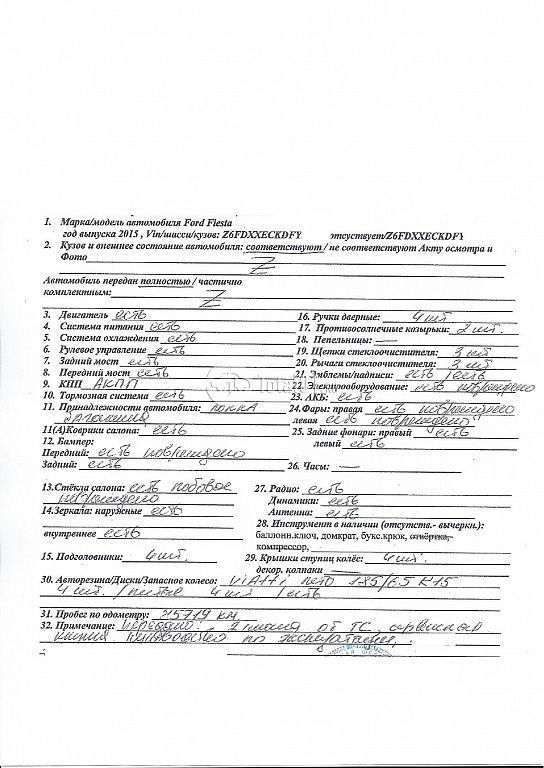 1. Марка/модель автомобиля Ford Fiesta
год выпуска 2015 , Vin/шасси/кузов: Z6FDXXECKDFY отсуствует/Z6FDXXECKDFY
2. Кузов и внешнее состояние автомобиля: соответствуют / не соответствуют Акту осмотра и
Фото Z
Z
Автомобиль передан полностью / частично
комплектным: Z
3. Двигатель есть
4. Система питания есть
5. Система охлаждения есть
6. Рулевое управление есть
7. Задний мост есть
8. Передний мост есть
9. КПП АКПП
10. Тормозная система есть
11. Принадлежности автомобиля:
11(А)Коврики салона: есть
12. Бампер:
Передний: есть повреждено
Задний: есть
13.Стёкла салона: есть лобовое
повреждено
14.Зеркала: наружные есть
внутреннее есть
15. Подголовники: 4 шт.
16. Ручки дверные: 4 шт
17. Противосолнечные козырьки: 2 шт.
18. Пепельницы: —
19. Щетки стеклоочистителя: 3 шт
20. Рычаги стеклоочистителя: 3 шт
21. Эмблемы/надписи: есть / есть
22. Электрооборудование: есть повреждено
23. АКБ: есть
24.Фары: правая есть повреждено
левая есть повреждено
25. Задние фонари: правый есть
левый есть
26. Часы: —
27. Радио: есть
Динамики: есть
Антенна: есть
28. Инструмент в наличии (отсутств.- вычеркн.):
баллонн.ключ, домкрат, букс.крюк, отвёртка,
компрессор,
29. Крышки ступиц колёс: 4 шт.
декор. колпаки —
30. Авторезина/Диски/Запасное колесо: Viatti лето 185/65 R15
4 шт. / литые 4 шт / есть
31. Пробег по одометру: 75719 км
32. Примечание: передано: 2 ключа от ТС,
книжка руководство по эксплуатации.